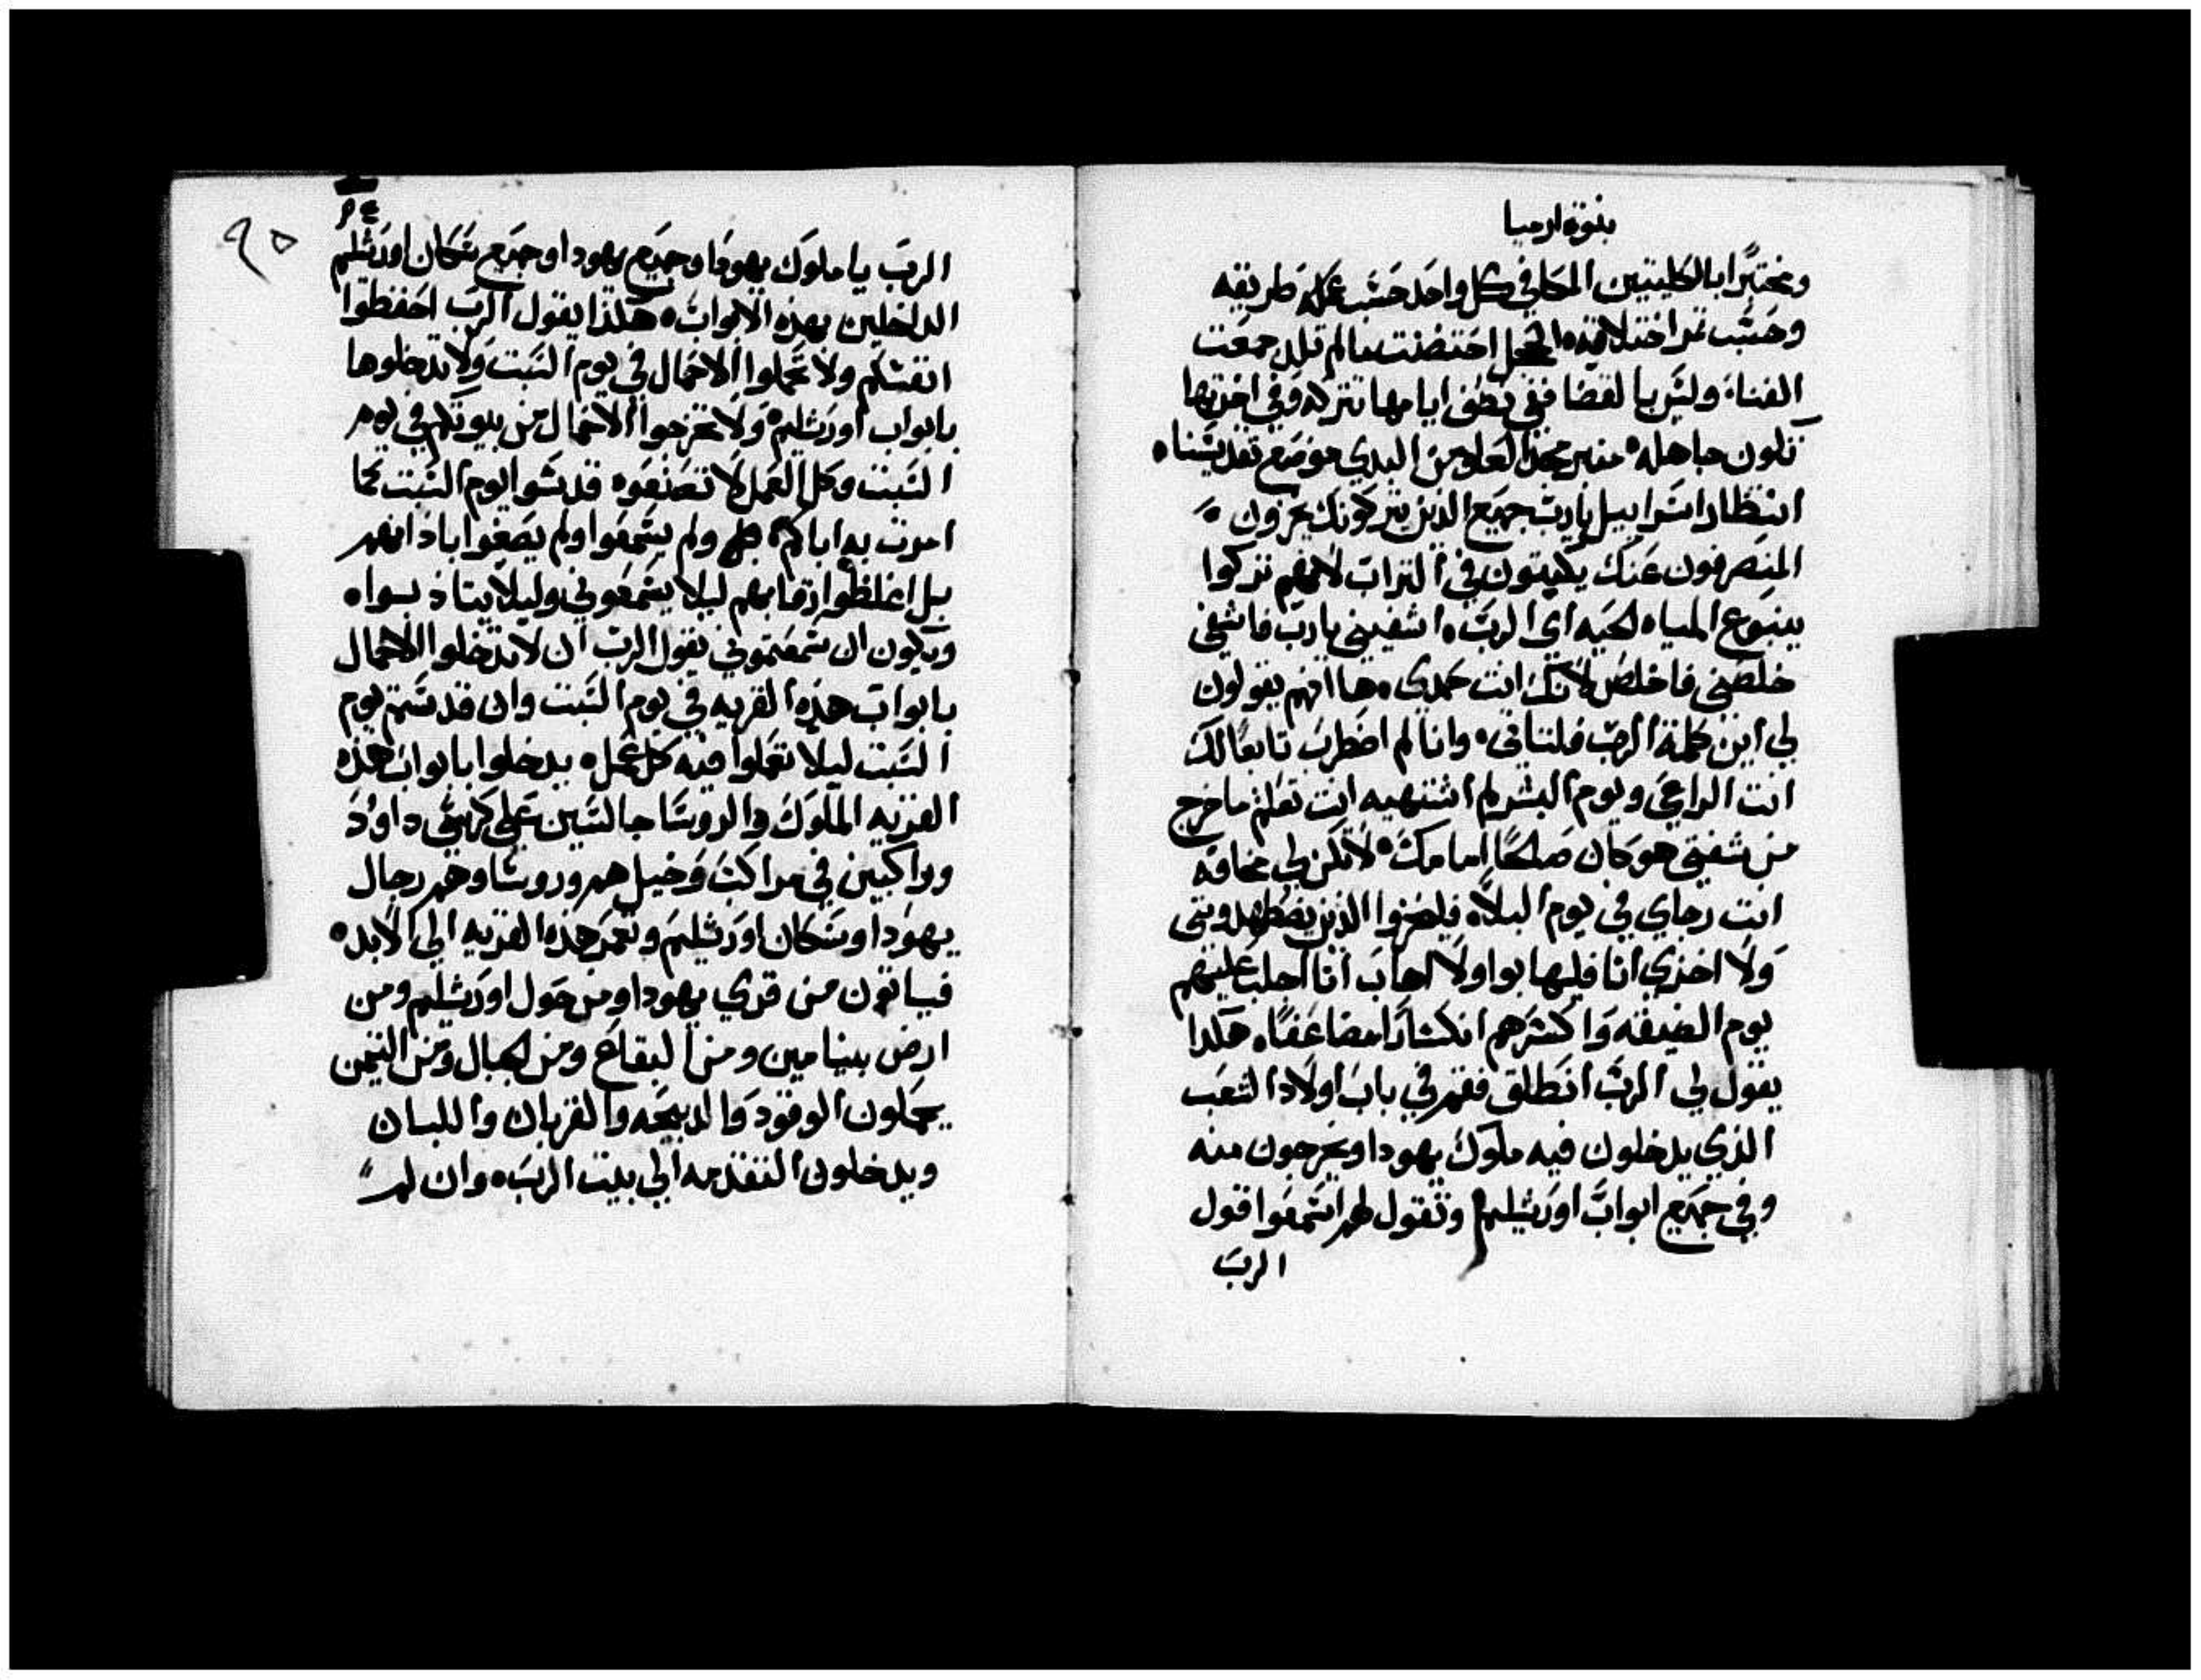 بنوة ارميا
ومختبرا بالكليتين المكافي كل واحد حسب عمله طريقه
وحسب ثمر اختلاقته الحجل احتضنت مالم تلد جمعت
الغناء وليس بالقضا ففي نصف ايامها تتركه وفي اخرتها
تكون جاهله منبر مجد العلو من البدي موضع تقديسنا
انتظار اسراييل يارب جميع الذين يتركونك يخزون
المنصرفون عنك يكتبون في التراب لانهم تركوا
ينبوع المياه الحيه اي الرب اشفيني يارب فاشفي
خلصني فاخلص لانك انت حمدي ها انهم يقولون
لي اين كلمة الرب فلتاتي وانا لم اضطرب تابعا لك
انت الراعي ويوم البشر لم اشتهيه انت تعلم ماخرج
من شفتي هو كان صالحا امامك لا تكن لي مخافه
انت رجاي في يوم البلا فليخزوا الذين يضطهدونني
ولا اخزي انا فليهابوا ولا اهاب انا اجلب عليهم
يوم الضيقه واكسرهم انكسارا مضاعفا هكدا
يقول لي الرب انطلق فقم في باب اولاد الشعب
الذي يدخلون فيه ملوك يهودا ويخرجون منه
وفي جميع ابواب اورشليم وتقول لهم استمعوا قول
الرب
٩٥
الرب ياملوك يهودا وجميع يهودا وجميع سكان اورشليم
الداخلين بهذه الابواب هكذا يقول الرب احفظوا
انفسكم ولا تحملوا الاحمال في يوم السبت ولا تدخلوها
بابواب اورشليم ولا تخرجوا الاحمال من بيوتكم في يوم
السبت وكل العمل لا تصنعوه قدسوا يوم السبت كما
امرت به اباكم ولم يسمعوا ولم يصغوا باذانهم
بل اغلظوا رقابهم ليلا يسمعوني وليلا يتادبوا
ويكون ان سمعتموني يقول الرب ان لا تدخلوا الاحمال
بابواب هذه القريه في يوم السبت وان قدستم يوم
السبت ليلا تعملوا فيه كل عمل يدخلوا بابواب هذه
القريه الملوك والروسا جالسين علي كرسي داوود
وراكبين في مراكب وخيل هم وروسا وهم رجال
يهودا وسكان اورشليم وتعمر هذه القريه الي الابد
فياتون من قري يهودا ومن حول اورشليم ومن
ارض بنيامين ومن البقاع ومن الجبال ومن التيمن
يحملون الوقود والدبيحه والقربان واللبان
ويدخلون التقدمه الي بيت الرب وان لم